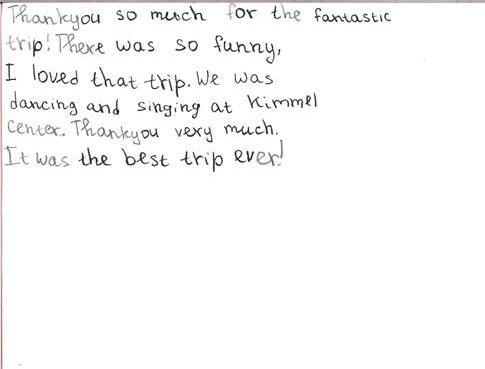 Thankyou so much for the fantastic
trip! There was so funny,
I loved that trip. We was
dancing and singing at Kimmel
Center. Thankyou very much.
It was the best trip ever!